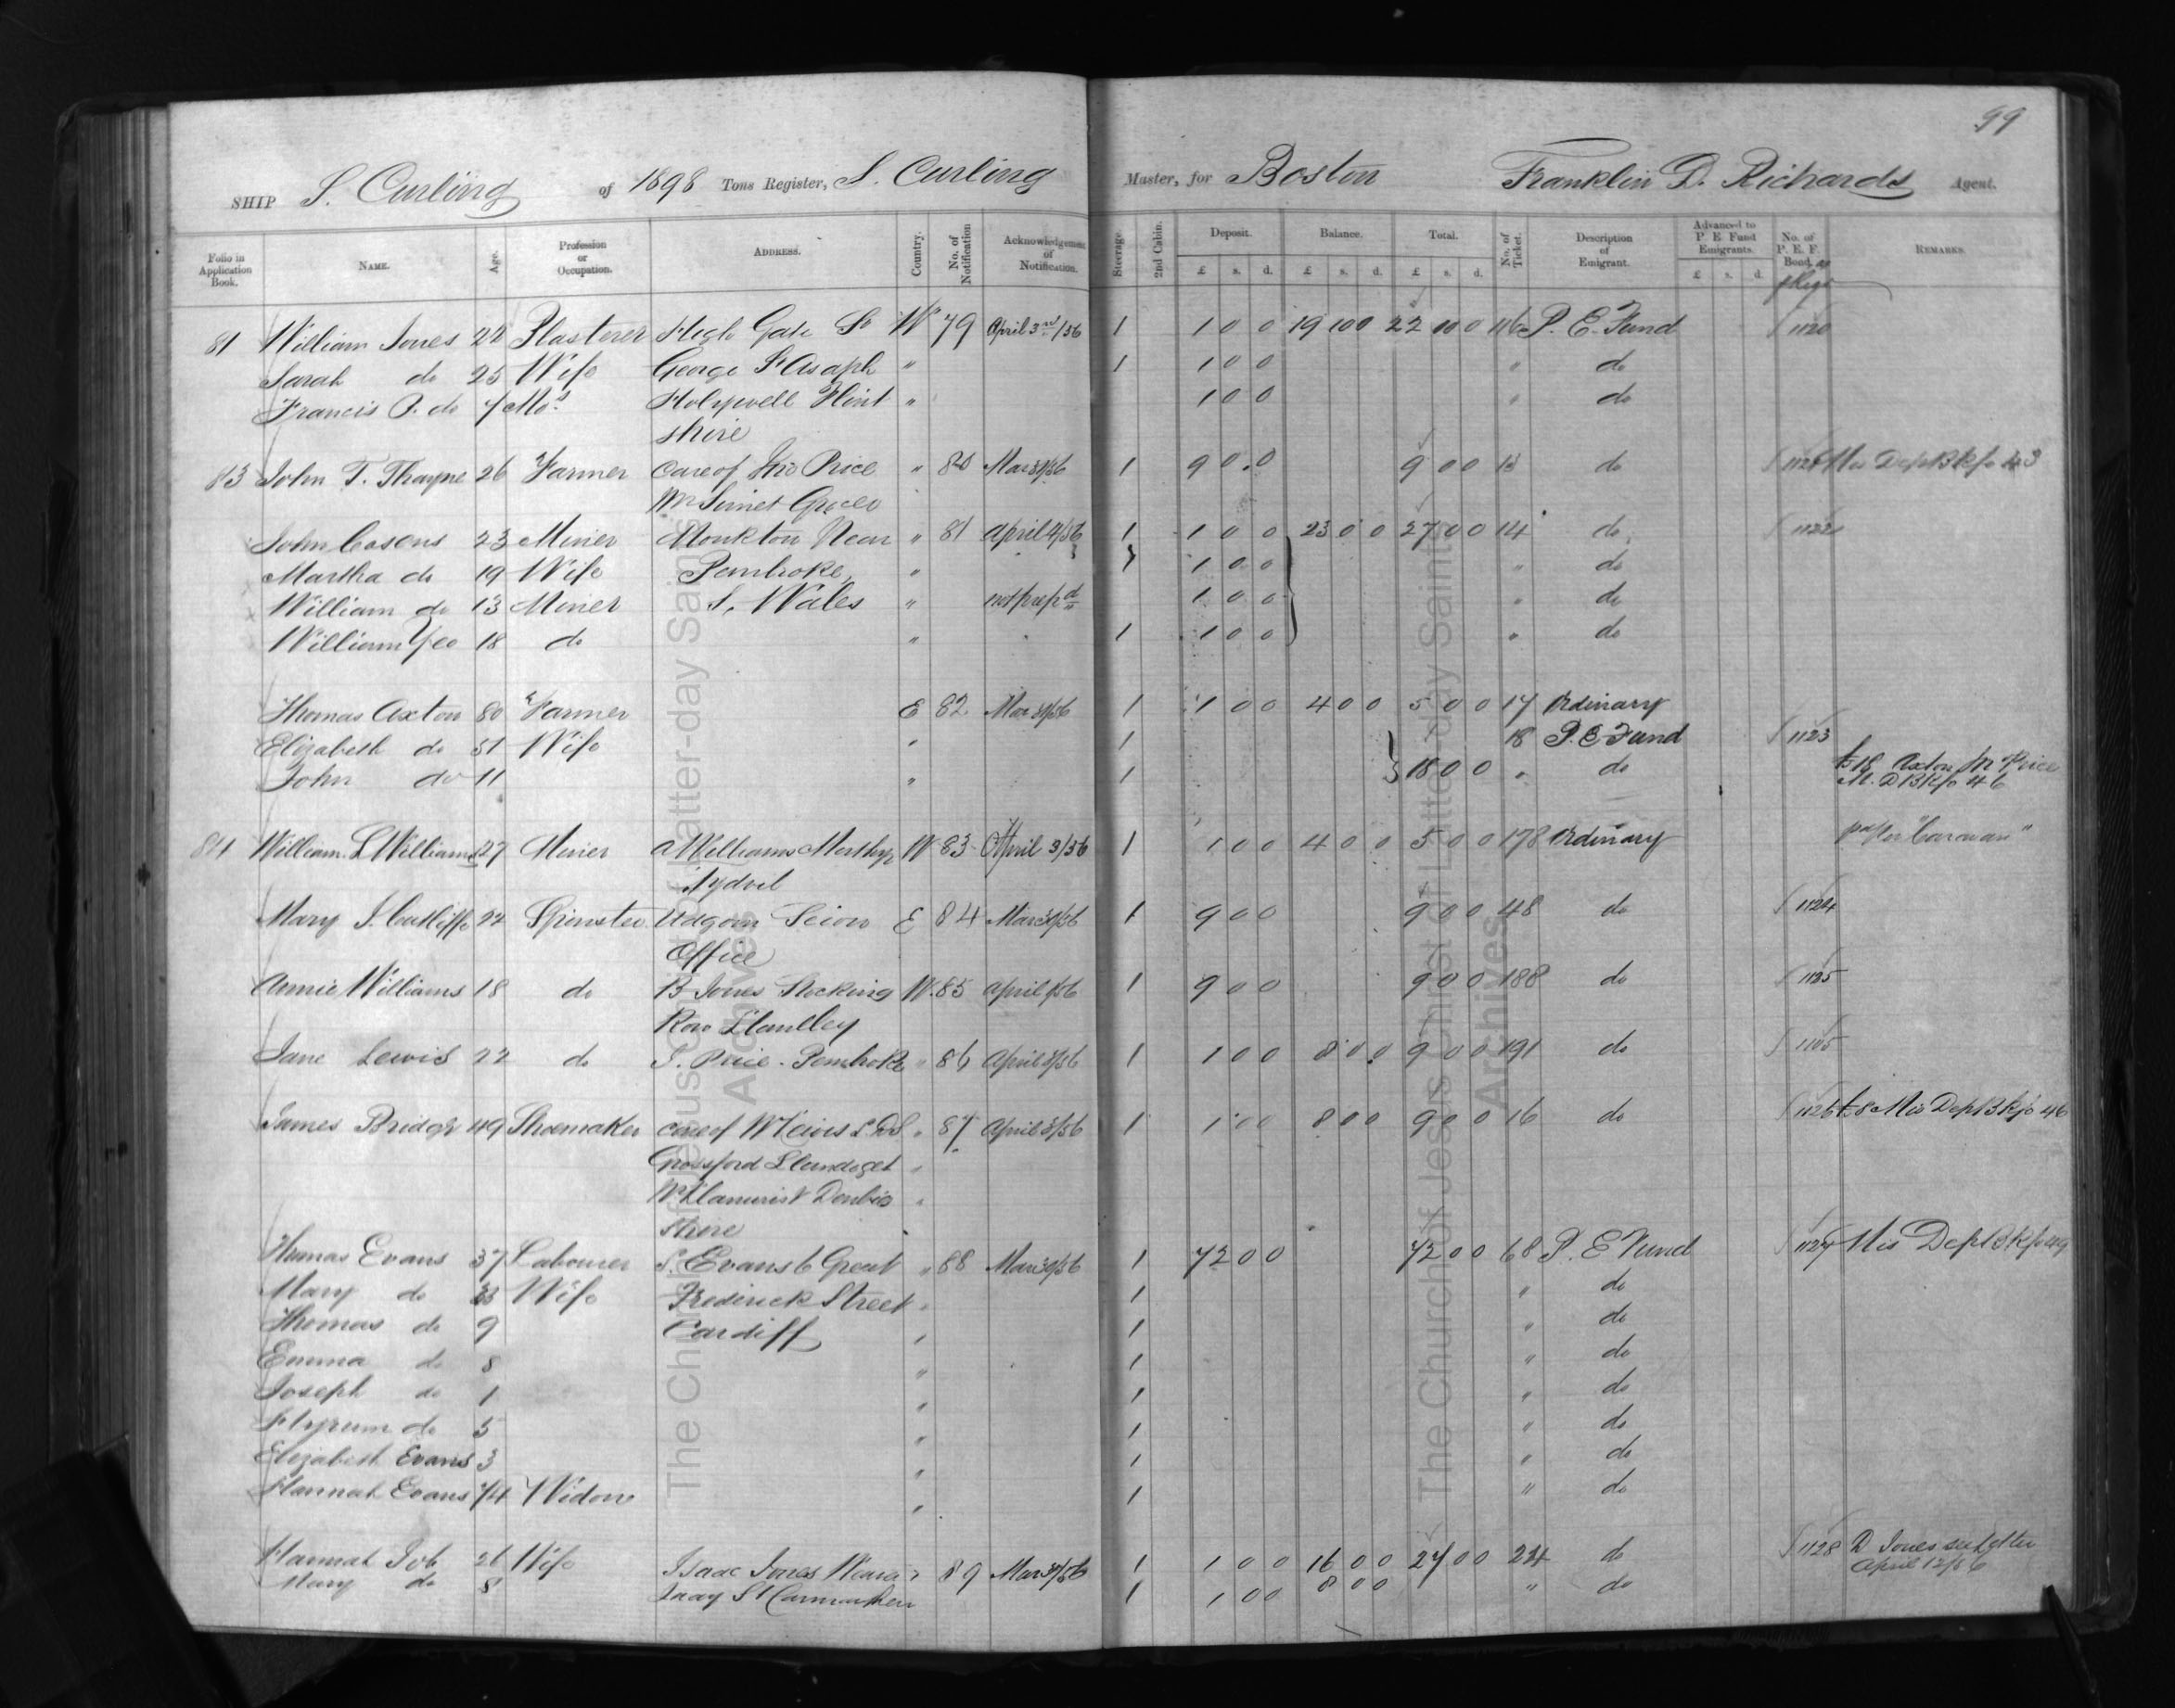 99
SHIP S. Curling of 1898 Tons Register, S. Curling Master, for Boston Franklin D. Richards Agent.
Folio in Application Book. NAME. Age. Profession or Occupation. ADDRESS. Country. No. of Notification Acknowledgement of Notification. Steerage. 2nd Cabin. Deposit. £ s. d. Balance. £ s. d. Total. £ s. d. No. of Ticket. Description of Emigrant. Advanced to P. E. Fund Emigrants. £ s. d. No. of P. E. F. Bond, REMARKS.
81 William Jones 22 Plasterer High Gate St W 79 April 3rd/56 1 1 0 0 19 10 0 22 10 0 116 P. E. Fund 1120
Sarah do 25 Wife George St Asaph " 1 1 0 0 " do
Francis P. do 7 Mos Holywell Flint " 1 0 0 " do
shire
83 John T. Thayne 26 Farmer care of Jno Price " 80 Mar 31/56 1 9 0 0 9 0 0 13 do 1121 Mis Dep B k fo 43
John Cosens 23 Miner Monkton Near " 81 April 4/56 1 1 0 0 23 0 0 27 0 0 14 do 1122
Martha do 19 Wife Pembroke, " 1 1 0 0 " do
William do 13 Miner S. Wales " not prepd 1 0 0 " do
William Yeo 18 do " 1 1 0 0 " do
Thomas Axton 80 Farmer E 82 Mar 31/56 1 1 0 0 4 0 0 5 0 0 17 Ordinary
Elizabeth do 51 Wife " 1 18 P. E Fund 1123
John do 11 " 1 18 0 0 " do £18 Axton Mr Price
M. D B k fo 46
84 William L Williams 27 Miner A Williams Merthyr W 83 April 3/56 1 1 0 0 4 0 0 5 0 0 178 Ordinary "Caravan"
Tydvil
Mary J. Cutliffe 22 Spinster Udgorn Seion E 84 Mar 31/56 1 9 0 0 9 0 0 48 do 1124
Office
Annie Williams 18 do B Jones Stocking W. 85 April 1/56 1 9 0 0 9 0 0 188 do 1125
Row Llanelley
Jane Lewis 22 do J. Price - Pembroke " 86 April 3/56 1 1 0 0 8 0 0 9 0 0 191 do 1105
James Bridge 49 Shoemaker care of " 87 April 3/56 1 1 0 0 8 0 0 9 0 0 16 do 1126 £8 Mis Dep B k fo 46
Llandoget "
Nr Llanwrist Denbie "
shire
Thomas Evans 37 Labourer S. Evans 6 Great " 88 Mar 31/56 1 72 0 0 72 0 0 68 P. E Fund 1127 Mis Dep B k fo 49
Mary do 33 Wife Frederick Street " 1 " do
Thomas do 9 Cardiff " 1 " do
Emma do 8 " 1 " do
Joseph do 1 " 1 " do
Hyrum do 5 " 1 " do
Elizabeth Evans 3 " 1 " do
Hannah Evans 74 Widow " 1 " do
Hannah Job 26 Wife Isaac Jones " 89 Mar 31/56 1 1 0 0 16 0 0 27 0 0 224 do 1128 D Jones see letter
April 12/56
Mary do 8 St Carmarthen 1 1 0 0 8 0 0 " do
The Church of Jesus Christ of Latter-day Saints
Archives
The Church of Jesus Christ of Latter-day Saints
Archives